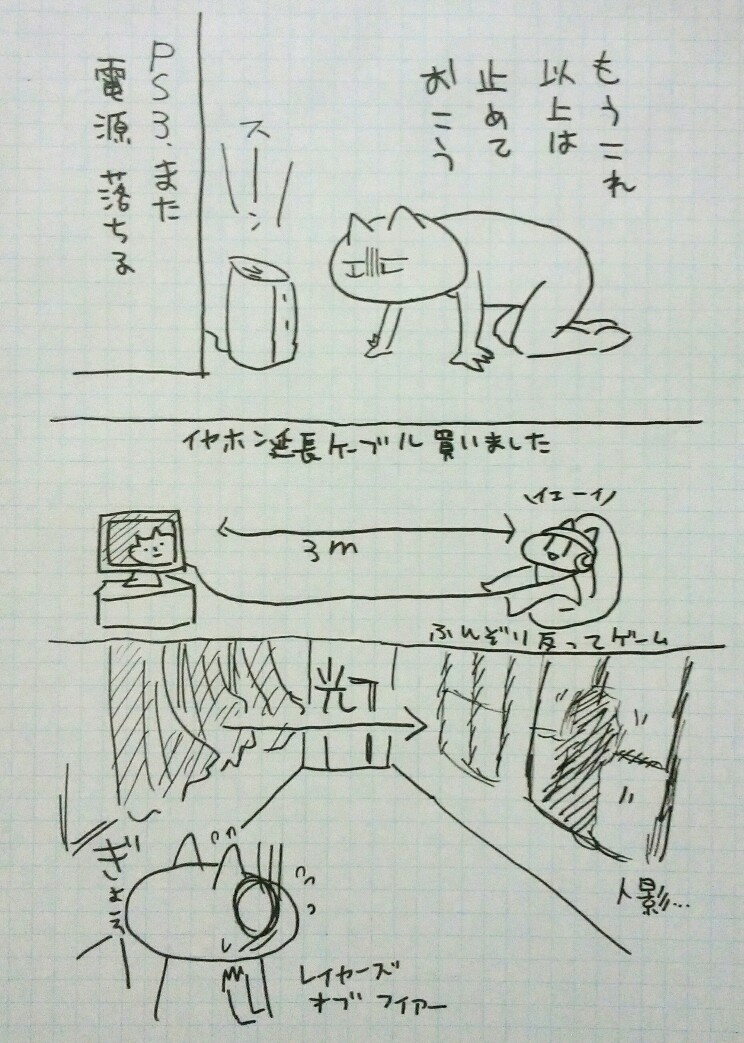 もうこれ
以上は
止めて
おこう
スーン
PS3、また
電源落ちる
イヤホン延長ケーブル買いました
イエーイ
3m
ふんぞり反ってゲーム
光
ぎょろ
人影…
レイヤーズ
オブ フィアー